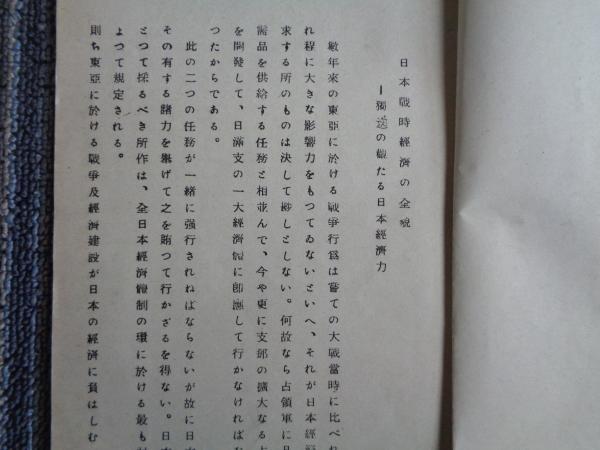 日本戰時經濟の全貌
―獨逸の觀たる日本經濟力
數年來の東亞に於ける戰爭行爲は嘗ての大戰當時に比べれ
れ程に大きな影響力をもつてゐないといへ、それが日本經
求する所のものは決して尠しとしない。何故なら占領軍に
需品を供給する任務と相並んで、今や更に支那の擴大なる
を開發して、日滿支の一大經濟體に卽應して行かなければな
つたからである。
此の二つの任務が一緖に强行されねばならないが故に日
その有する諸力を擧げて之を賄つて行かざるを得ない。日
とつて採るべき所作は、全日本經濟體制の環に於ける最も
よつて規定される。
則ち東亞に於ける戰爭及經濟建設が日本の經濟に負はしむ